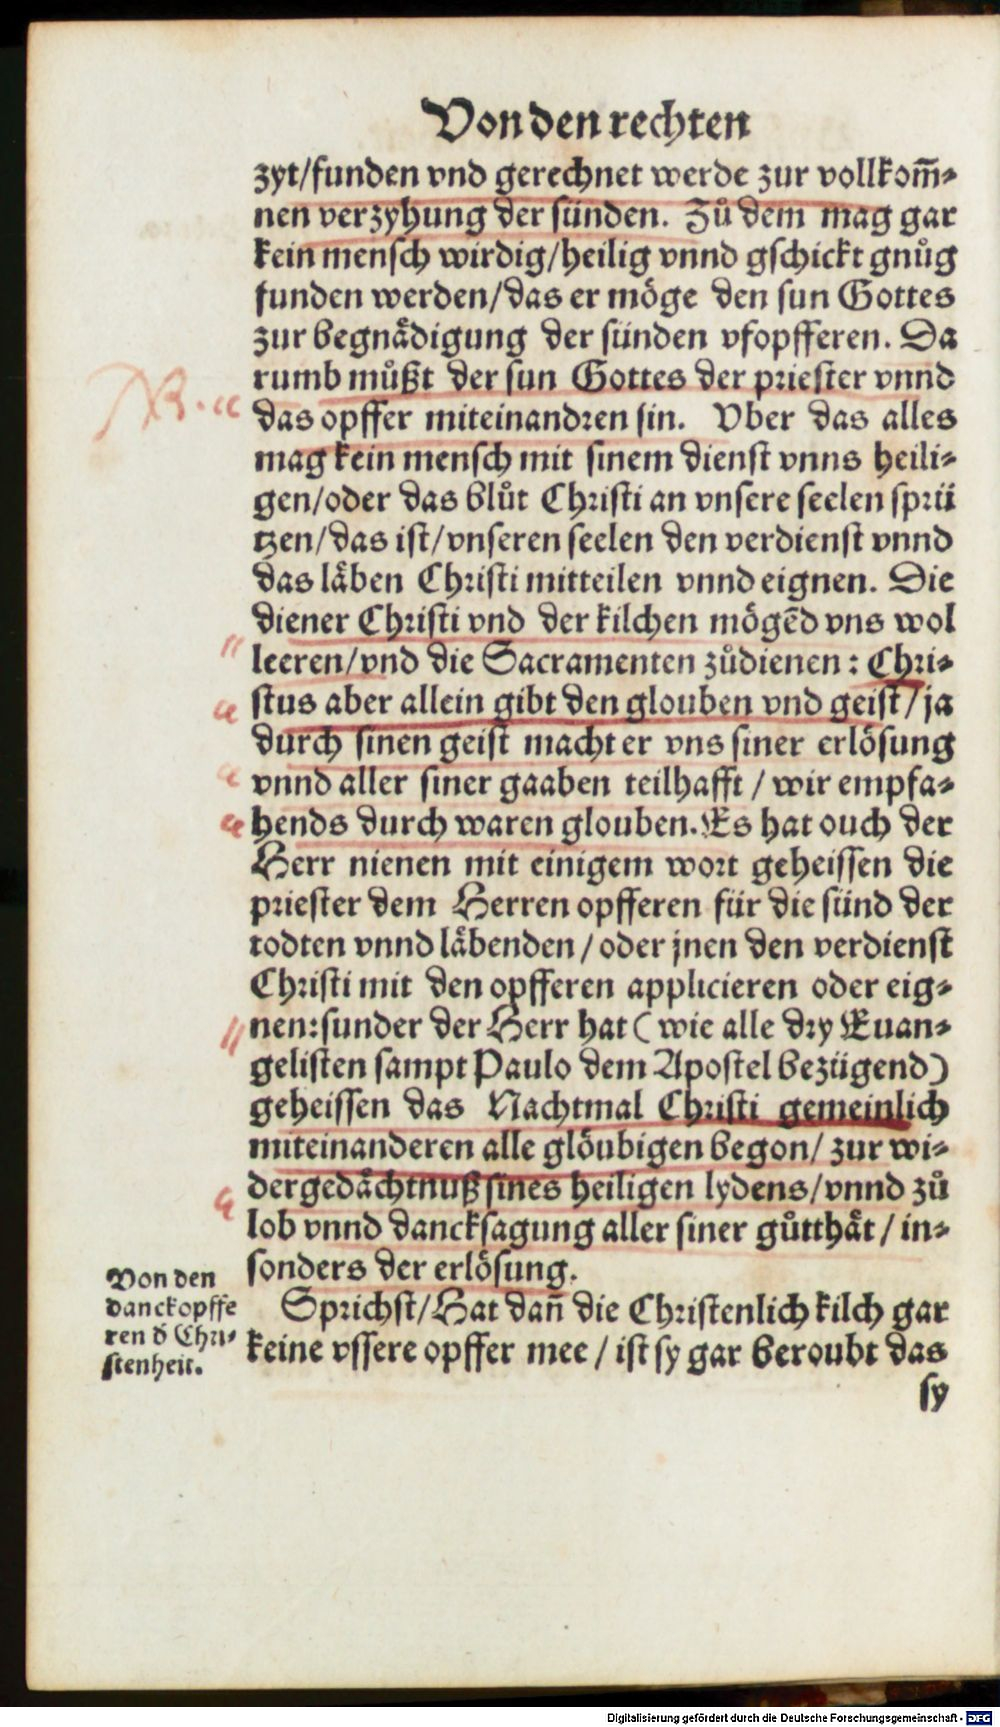 Von den rechten
zyt/funden vnd gerechnet werde zur vollkom̃-
nen verzyhung der sünden. Zů dem mag gar
kein mensch wirdig/heilig vnnd gschickt gnůg
funden werden/das er möge den sun Gottes
zur begnädigung der sünden vfopfferen. Da
rumb můßt der sun Gottes der priester vnnd
das opffer miteinandren sin. Vber das alles
mag kein mensch mit sinem dienst vnns heili-
gen/oder das blůt Christi an vnsere seelen sprü
tzen/das ist/vnseren seelen den verdienst vnnd
das läben Christi mitteilen vnnd eignen. Die
diener Christi vnd der kilchen mögẽd vns wol
leeren/vnd die Sacramenten zůdienen: Chri-
stus aber allein gibt den glouben vnd geist/ja
durch sinen geist macht er vns siner erlösung
vnnd aller siner gaaben teilhafft / wir empfa-
hends durch waren glouben. Es hat ouch der
Herr nienen mit einigem wort geheissen die
priester dem Herren opfferen für die sünd der
todten vnnd läbenden / oder jnen den verdienst
Christi mit den opfferen applicieren oder eig-
nen: sunder der Herr hat ( wie alle dry Euan-
gelisten sampt Paulo dem Apostel bezügend)
geheissen das Nachtmal Christi gemeinlich
miteinanderen alle glöubigen begon/ zur wi-
dergedächtnuß sines heiligen lydens/vnnd zů
lob vnnd dancksagung aller siner gůtthät / in-
sonders der erlösung.
Von den
danckopffe
ren d̕ Chri-
stenheit.
Sprichst/Hat dañ die Christenlich kilch gar
keine vssere opffer mee / ist sy gar beroubt das
sy
Digitalisierung gefördert durch die Deutsche Forschungsgemeinschaft - DFG